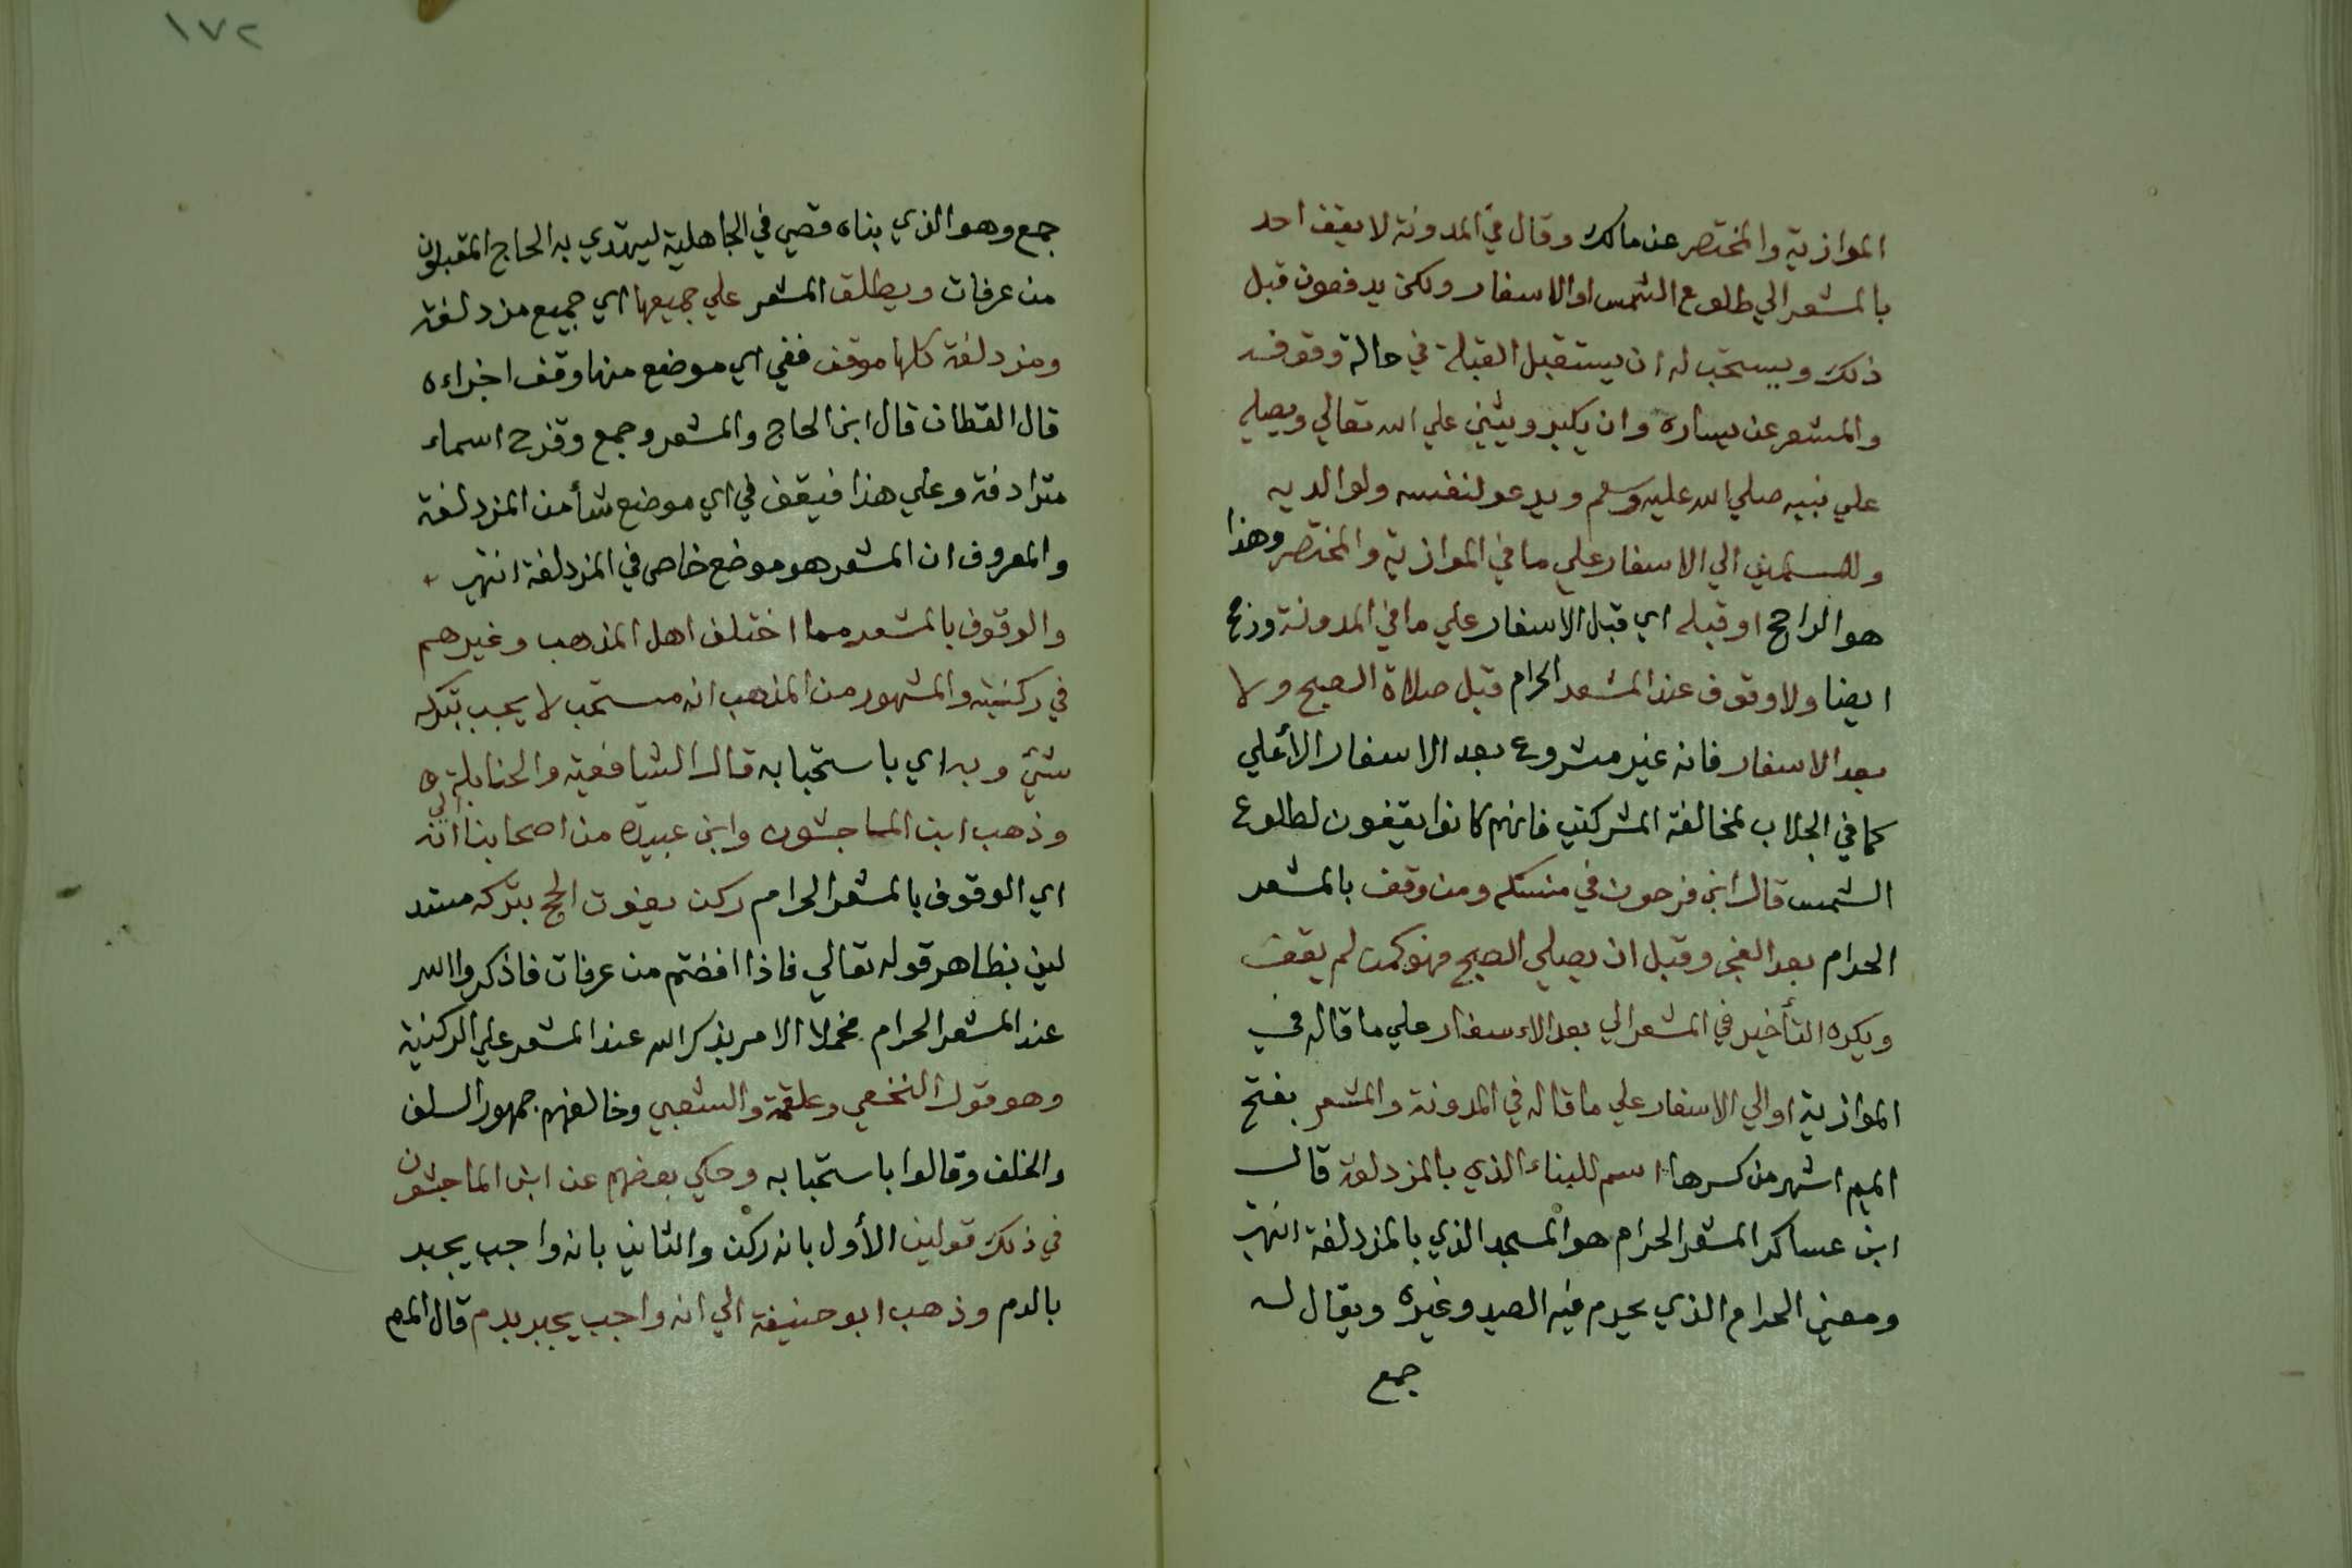 الموازية والمختصر عن مالك وقال في المدونة لا يقف احد
بالمشعر الي طلوع الشمس او الاسفار ولكن يدفعون قبل
ذلك ويستحب له ان يستقبل القبلة في حالة وقوفه
والمشعر عن يساره وان يكبر ويثني علي الله تعالي ويصلي
علي نبيه صلي الله عليه وسلم ويدعو لنفسه ولوالديه
وللمسلمين الي الاسفار علي ما في الموازية والمختصر وهذا
هو الراجح او قبله اي قبل الاسفار علي ما في المدونة ورجح
ايضا ولا وقوف عند المشعر الحرام قبل صلاة الصبح ولا
بعد الاسفار فانه غير مشروع بعد الاسفار الأعلي
كما في الجلاب لمخالفة المشركين فانهم كانوا يقفون لطلوع
الشمس قال ابن فرحون في منسكه ومن وقف بالمشعر
الحرام بعد الفجر وقبل ان يصلي الصبح فهو كمن لم يقف
ويكره التأخير في المشعر الي بعد الاسفار علي ما قاله في
الموازية او الي الاسفار علي ما قاله في المدونة والمشعر بفتح
الميم اشهر من كسرها اسم للبناء الذي بالمزدلفة قال
ابن عساكر المشعر الحرام هو المسجد الذي بالمزدلفة انتهي
ومعني الحرام الذي يحرم فيه الصيد وغيره ويقال له
جمع
١٧٢
جمع وهو الذي بناه قصي في الجاهلية ليهتدي به الحاج المقبلون
من عرفات ويطلق المشعر علي جميعها اي جميع مزدلفة
ومزدلفة كلها موقف ففي اي موضع منها وقف اجزاءه
قال القطان قال ابن الحاج والمشعر وجمع وقزح اسماء
مترادفة وعلي هذا فيقف في اي موضع شأ من المزدلفة
والمعروف ان المشعر هو موضع خاص في المزدلفة انتهي
والوقوف بالمشعر مما اختلف اهل المذهب وغيرهم
في ركنيته والمشهور من المذهب انه مستحب لا يجب بتركه
شئ وبه اي باستحبابه قال الشافعية والحنابلة
وذهب ابن الماجشون وابن عبيدة من اصحابنا الي انه
اي الوقوف بالمشعر الحرام ركن يفوت الحج بتركه مستد
لين بظاهر قوله تعالي فاذا افضتم من عرفات فاذكروا الله
عند المشعر الحرام فحملا الامر بذكر الله عند المشعر علي الركنية
وهو قول النخعي وعلقمة والشعبي وخالفهم جمهور السلف
والخلف وقالوا باستحبابه وحكي بعضهم عن ابن الماجشون
في ذلك قولين الأول بانه ركن والثاني بانه واجب يجبر
بالدم وذهب ابو حنيفة الي انه واجب يجبر بدم قال المم